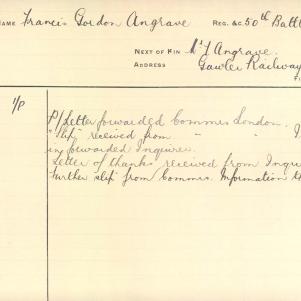 NAME Francis Gordon Angrave REG. &C. 50th Battl
NEXT OF KIN Mr J Angrave.
ADDRESS Gawler Railway
1/P P/Letter forwarded Commrs London.
"Slip" received from " "
in forwarded Inquirer.
Letter of thanks received from Inqui
Further slip from Commrs. Information th